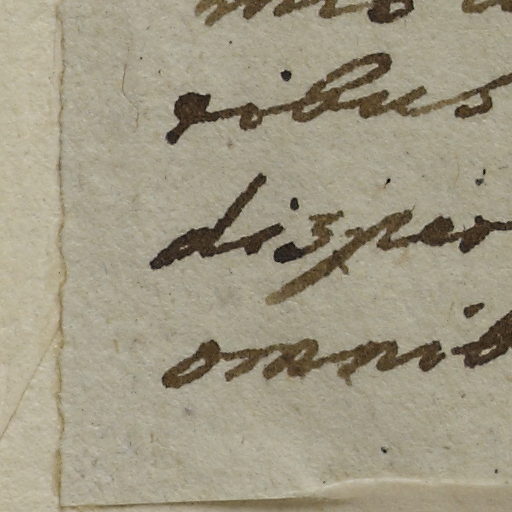 ribus
disper
omnib